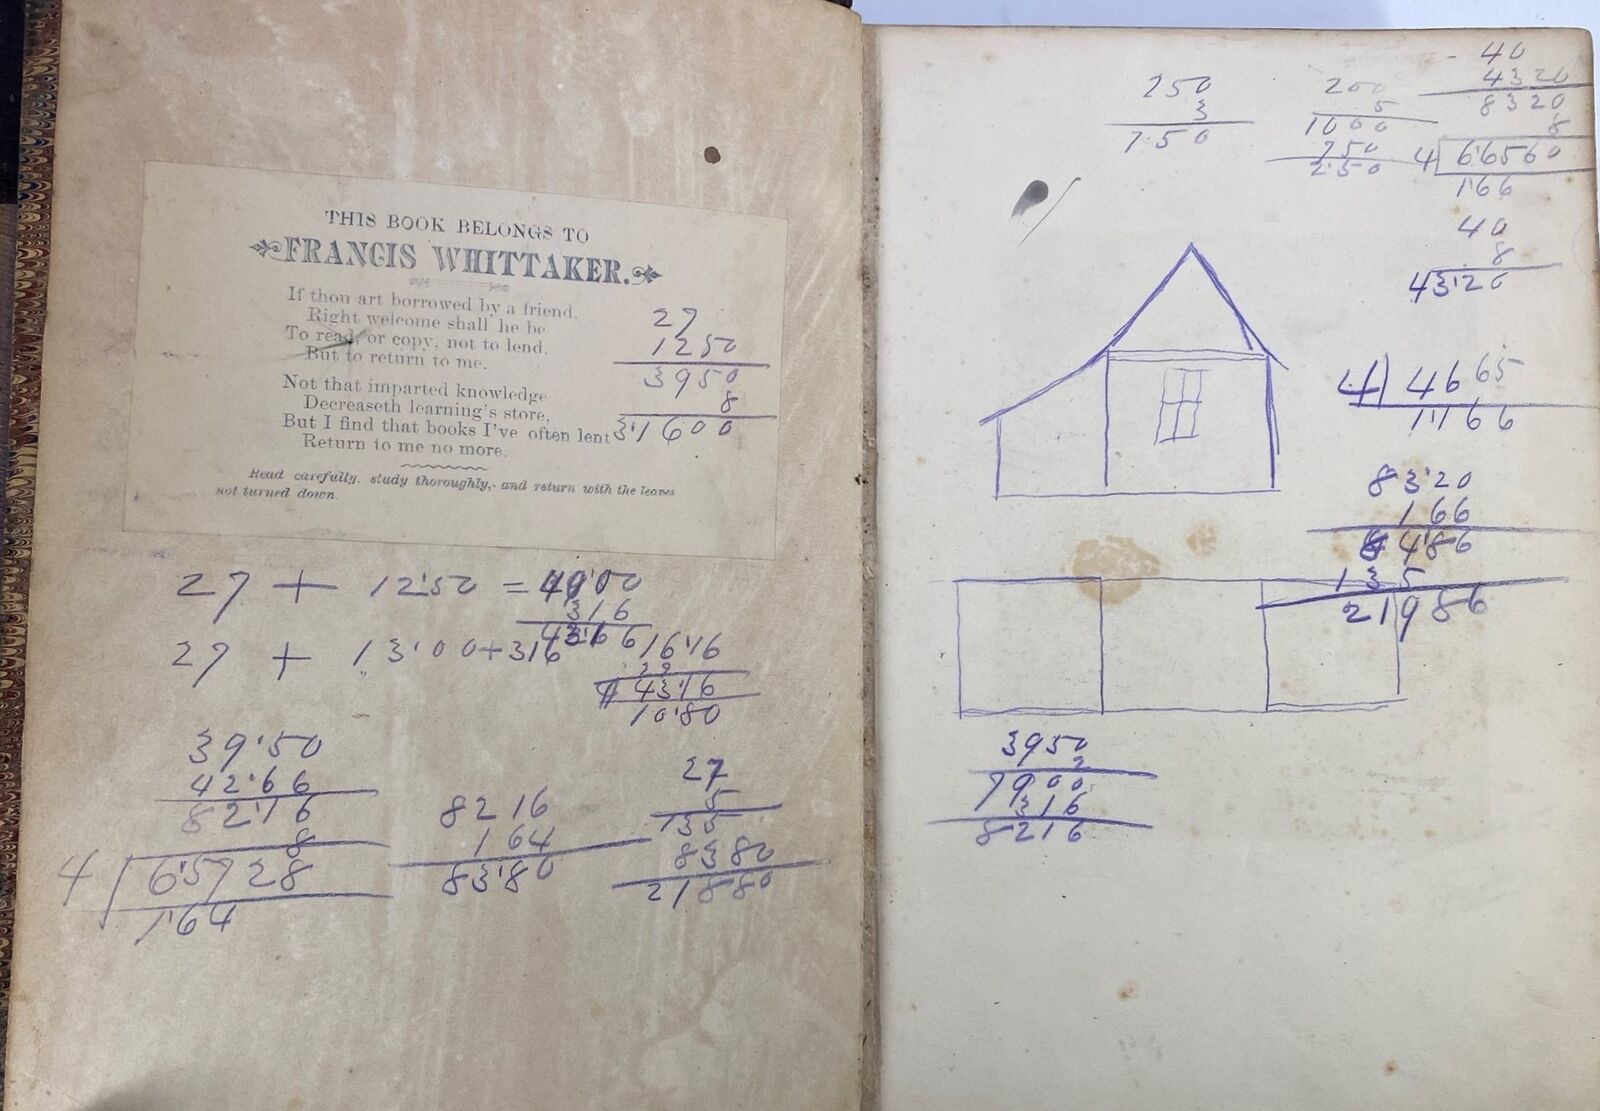 THIS BOOK BELONGS TO
FRANCIS WHITTAKER.
If thou art borrowed by a friend,
Right welcome shall he be
To read, or copy, not to lend,
But to return to me.
Not that imparted knowledge
Decreaseth learning's store,
But I find that books I've often lent
Return to me no more.
Read carefully, study thoroughly, and return with the leaves
not turned down.
27
1250
3950
8
31600
27 + 12'50 =
316
27 + 13'00+316
16'16
4316
10'80
39'50
42'66
82'16
8
4 65728
1'64
8216
164
83'80
27
5
135
8380
21880
250
3
7.50
200
5
1000
750
2.50
40
4320
8320
8
4 66560
1'66
40
8
43'20
4 4665
1'166
83'20
166
84'86
135
21986
3950
2
7900
316
8216